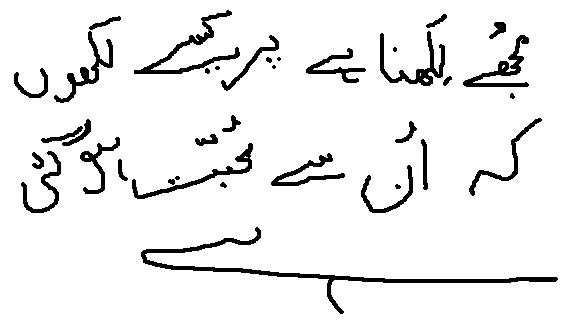 مجھے لکھنا ہے پر کیسے لکھوں
کہ اُن سے محبّت ہو گئی
ہے